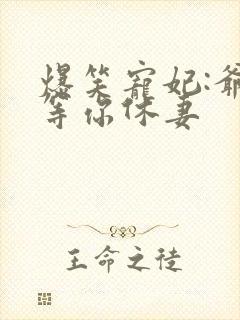 爆笑寵妃:爺
等你休妻
王命之徒